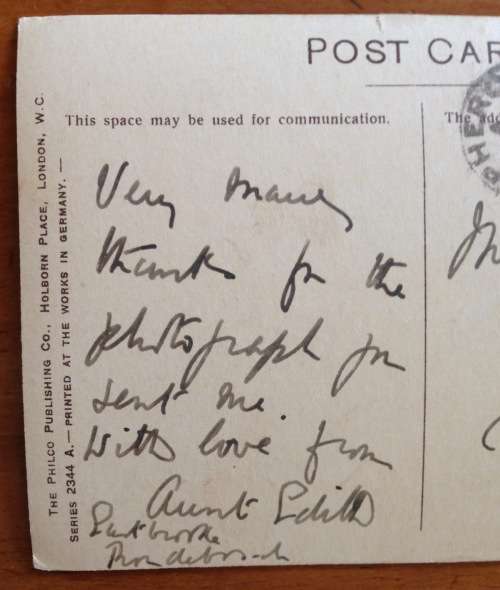 POST CAR
This space may be used for communication.
The add
PHER
Very many
thanks for the
photograph you
sent me.
With love from
Aunt Edith
Rondebosch
THE PHILCO PUBLISHING CO., HOLBORN PLACE, LONDON, W.C.
SERIES 2344 A.—PRINTED AT THE WORKS IN GERMANY.—